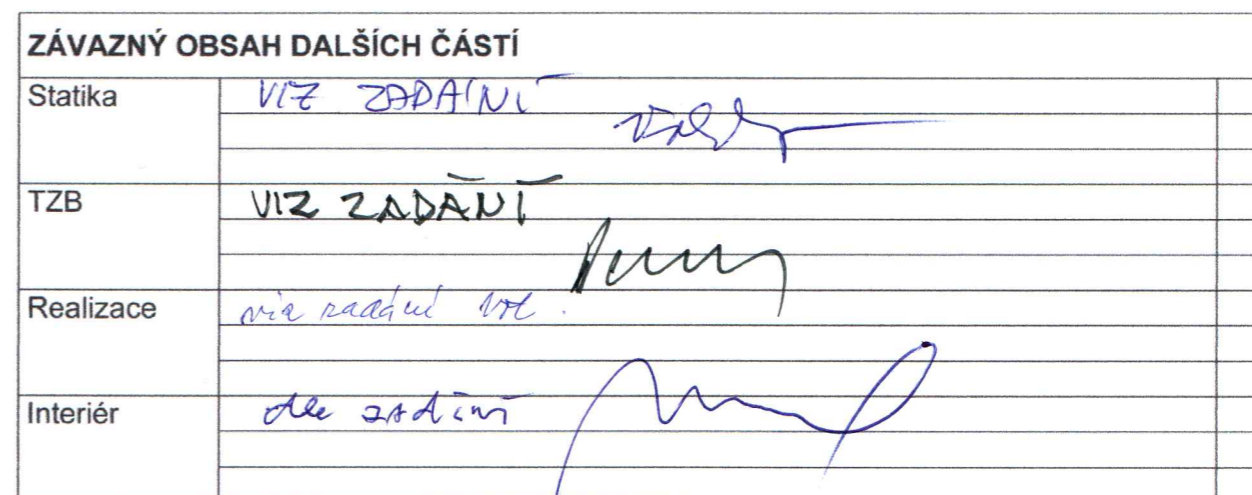 ZÁVAZNÝ OBSAH DALŠÍCH ČÁSTÍ
Statika VIZ ZADÁNÍ
TZB VIZ ZADÁNÍ
Realizace viz zadání
Interiér dle zadání